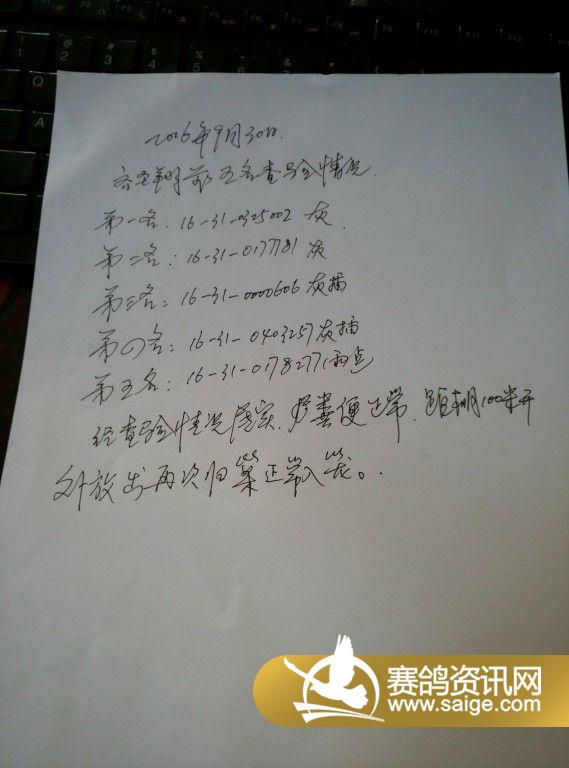 2016年9月30日.
前五名查验情况.
第一名: 16-31-0325002 灰.
第二名: 16-31-0177781 灰
第三名: 16-31-0000606 灰插
第四名: 16-31-0403257 灰插
第五名: 16-31-0178277 雨点
经查验情况属实. 粪便正常. 距棚100米开
外放出再次归巢正常入笼。.
赛鸽资讯网
www.saige.com